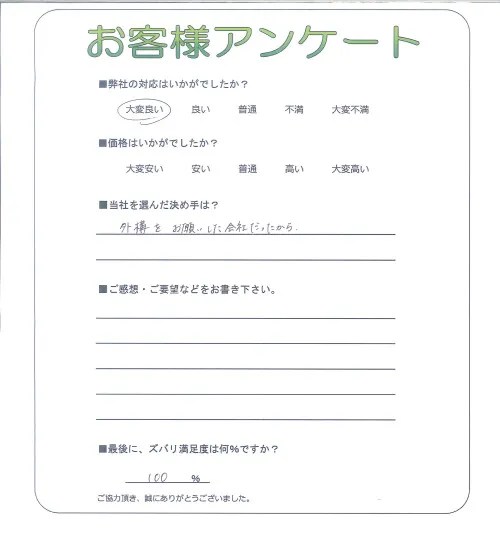 お客様アンケート
■弊社の対応はいかがでしたか？
大変良い 良い 普通 不満 大変不満
■価格はいかがでしたか？
大変安い 安い 普通 高い 大変高い
■当社を選んだ決め手は？
外構を お願いした会社だったから.
■ご感想・ご要望などをお書き下さい。
■最後に、ズバリ満足度は何%ですか？
100 %
ご協力頂き、誠にありがとうございました。